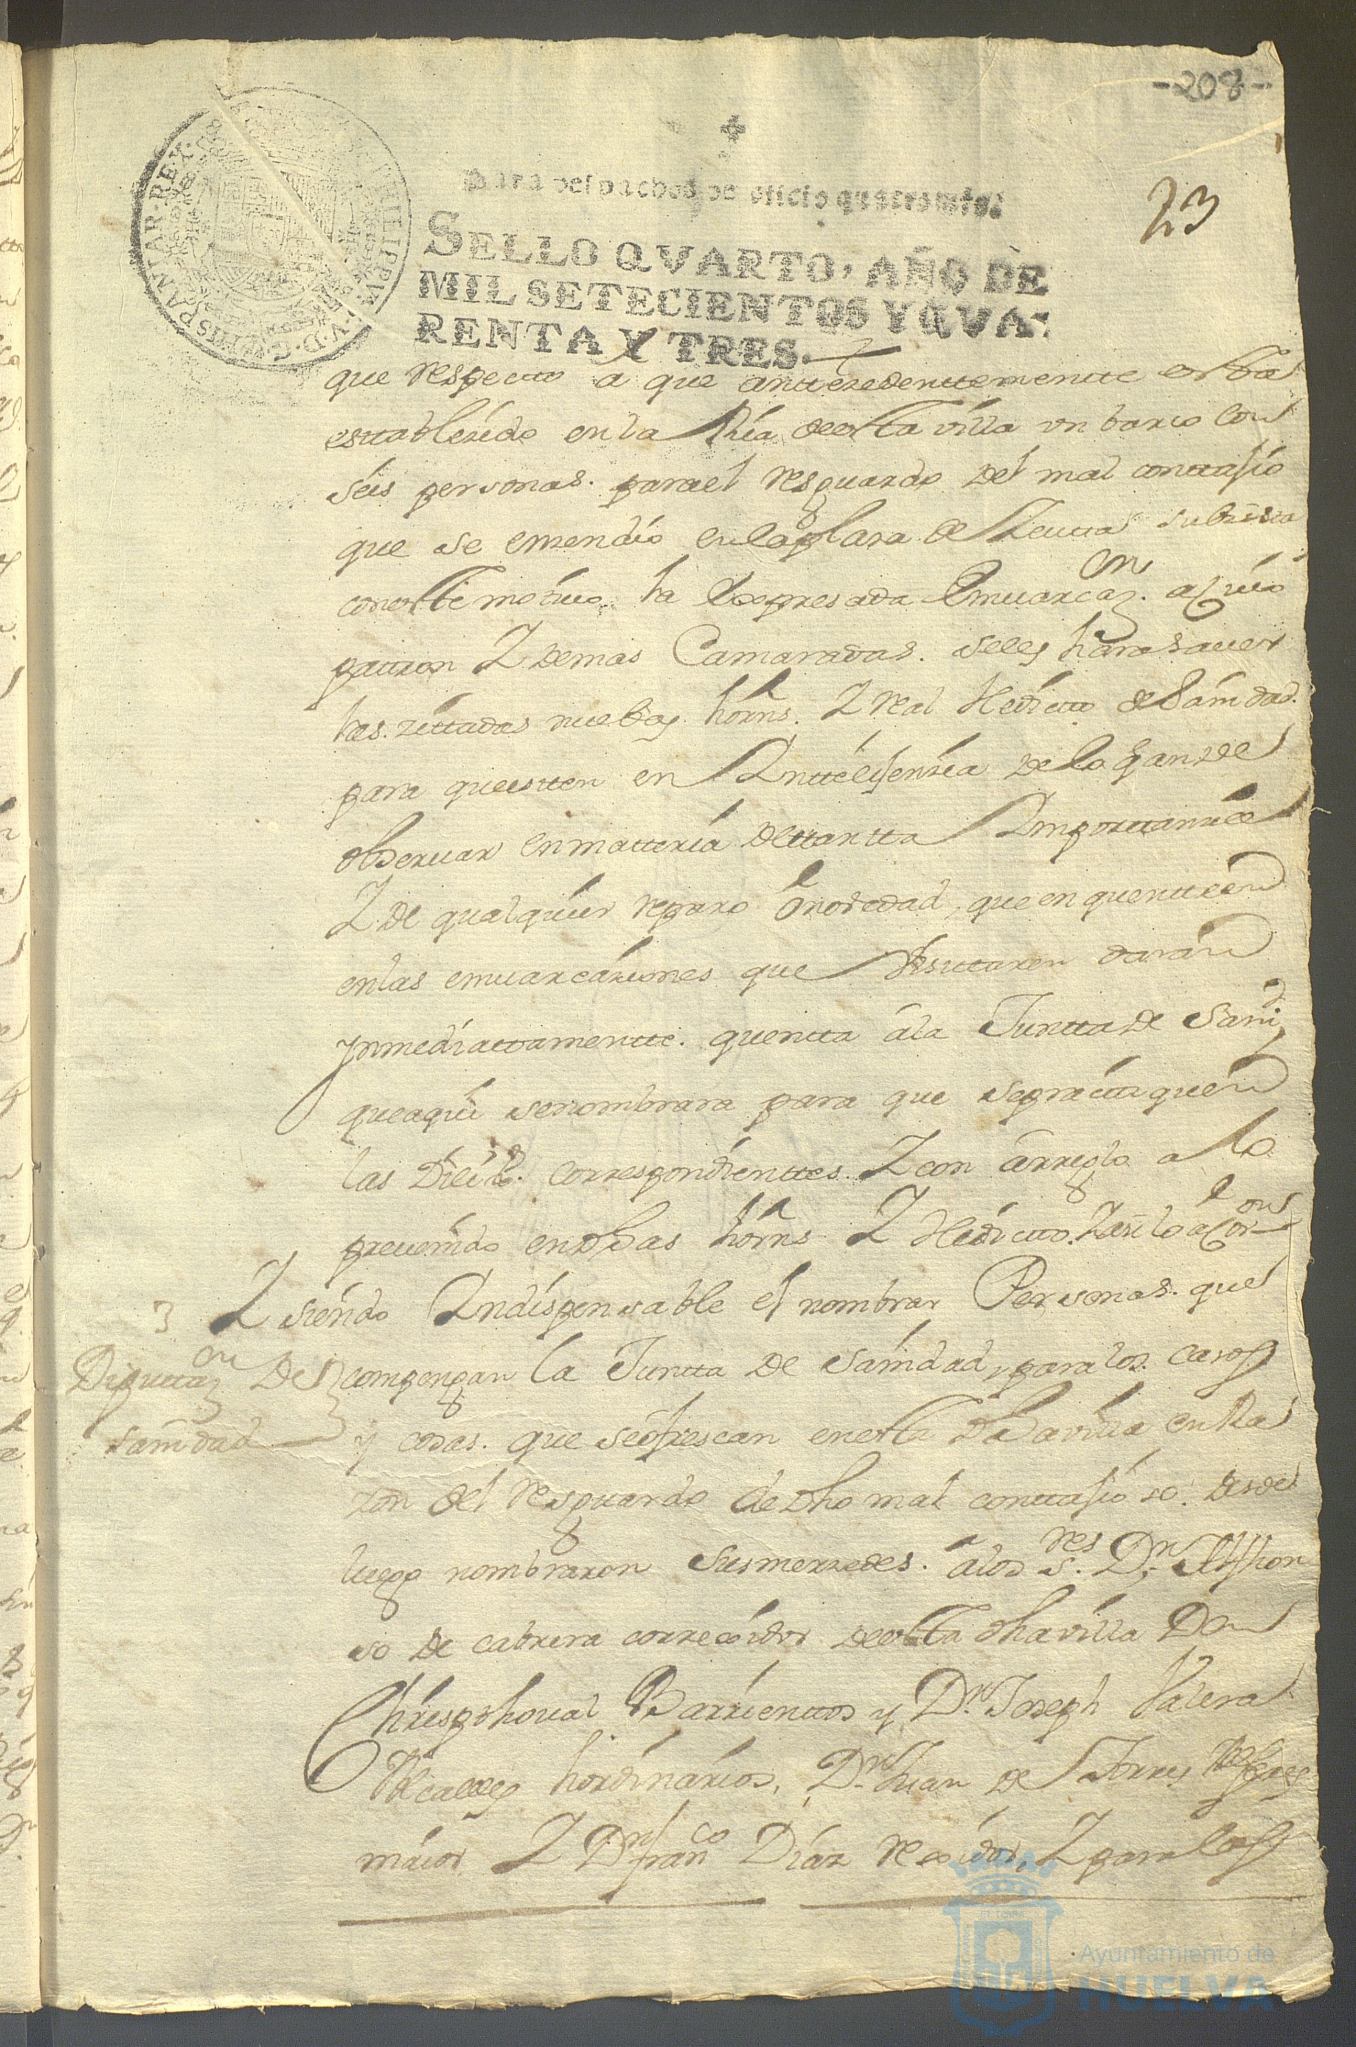 -208-
23
Para despachos de oficio quatro mrs.
SELLO QVARTO, AÑO DE
MIL SETECIENTOS Y QVA-
RENTA Y TRES.
PHILIPPUS V. D. G. HISPANIAR. REX
que respecto a que antezedentemente estta
establezido en la Ria de estta villa un barco con
seis personas. para el resguardo del mal conttasio
que se enzendio en la plaza de Zeutta subsista
con estte motivo la expresada Emuarcaz.on a cuio
patron Y demas Camaradas. se les hara saver
las zittadas nuebas hòrns. Y real Hedicto de Sanidad.
para que esten en Ynttelisenzia de lo q an de
observar en matteria de ttantta Ymporttanzia
Y de qualquier reparo ò nobedad, que enquentren
en las emuarcaziones que visittaren daran
Ynmediattamentte. quentta à la Juntta de Sanid.
que aqui se nombrara para que se practtiquen
las Dilix.s correspondienttes. Y con arreglo a lo
prevenido en dhas hòrns Y Hedictto. Y asi lo acor.on
3 Y siendo Yndispensable el nombrar Personas. que
Diputtaz.on De
sanidad
compongan la Juntta de Sanidad, para los casos
y cosas. que se ofrescan en estta dha villa en Ra
zon del resguardo de dho mal conttasioso. desde
luego nombraron sus merzedes. à los s.res D.n Ilfhon
so de cabrera correxidor de estta dha villa Don
Chrispthoual Barrienttos y D.n Joseph Valera
Alcaldes hordinarios, D.n Juan de Torres Alferes
maior Y D.n fran.co Diaz rexidor, Y para los
Ayuntamiento de
HUELVA